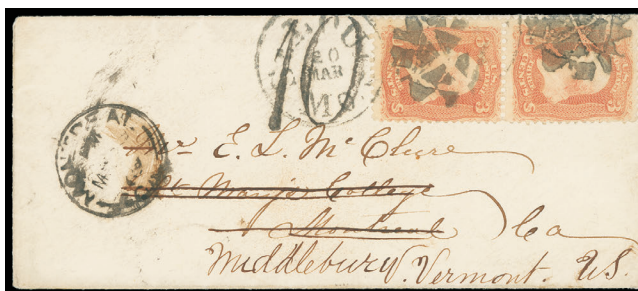 10
20
MAR
MO
3 3 3 3
CENTS CENTS
MONTREAL
Mr E. L. McClure
St Marys College
Montreal Ca
Middlebury. Vermont. U.S.